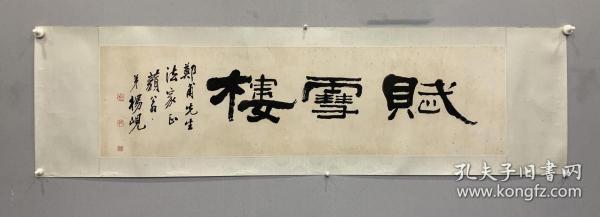 賦雪樓
鄭甫先生
法家正
藐翁
弟楊峴
孔夫子旧书网
www.kongfz.com